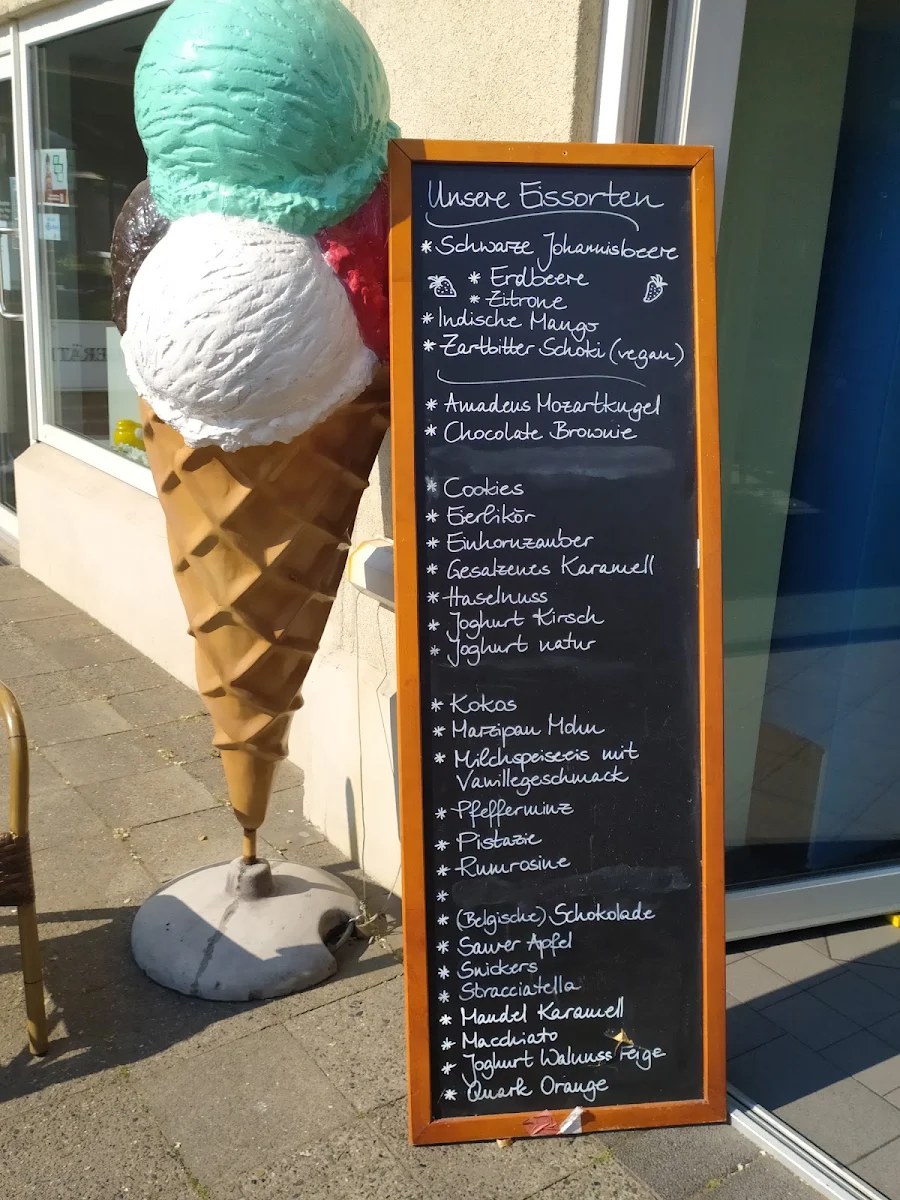 Unsere Eissorten
* Schwarze Johannisbeere
* Erdbeere
* Zitrone
* Indische Mango
* Zartbitter Schoki (vegan)
* Amadeus Mozartkugel
* Chocolate Brownie
* Cookies
* Eierlikör
* Einhornzauber
* Gesalzenes Karamell
* Haselnuss
* Joghurt Kirsch
* Joghurt natur
* Kokos
* Marzipan Mohn
* Milchspeiseeis mit
Vanillegeschmack
* Pfefferminz
* Pistazie
* Rumrosine
*
* (Belgische) Schokolade
* Saurer Apfel
* Snickers
* Stracciatella
* Mandel Karamell
* Macchiato
* Joghurt Walnuss Feige
* Quark Orange